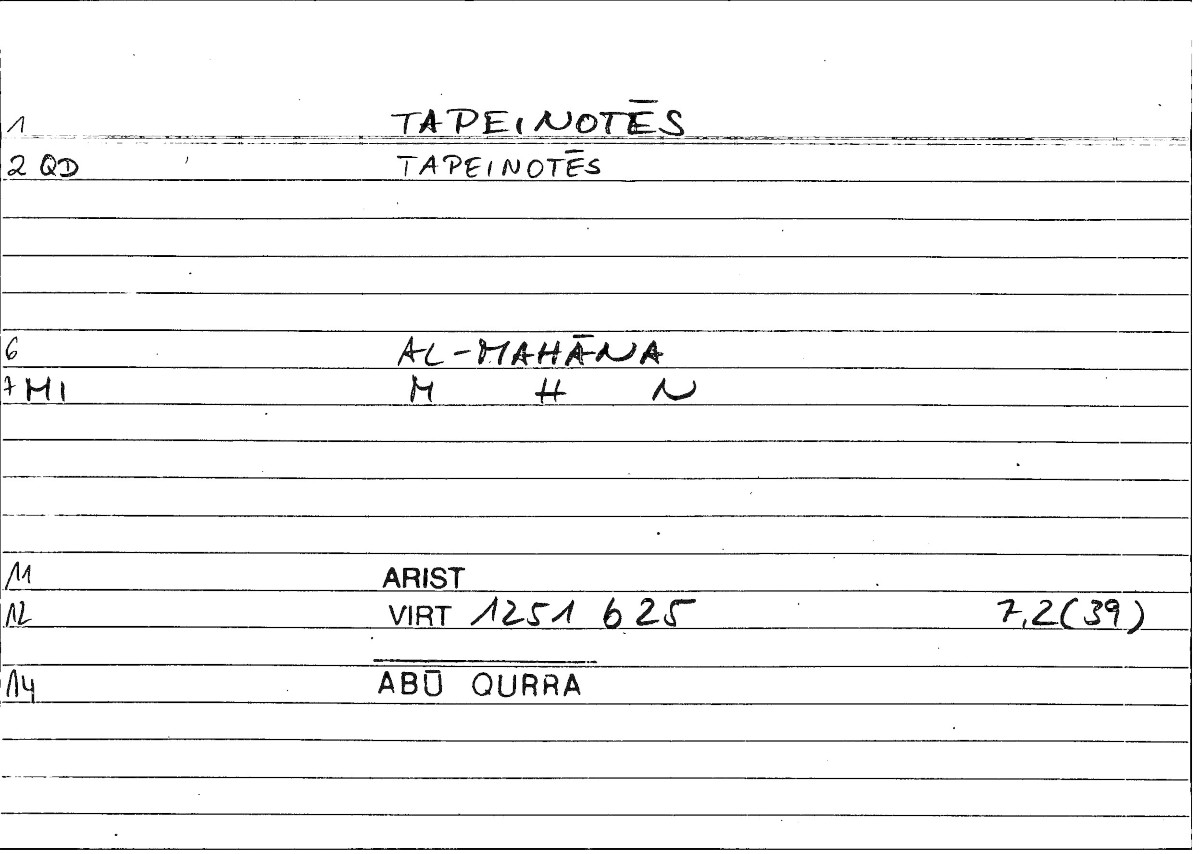 1 TAPEINOTĒS
2 QD TAPEINOTĒS
6 AL-MAHĀNA
7 MI M H N
11 ARIST
12 VIRT 1251 625 7,2(39)
14 ABŪ QURRA